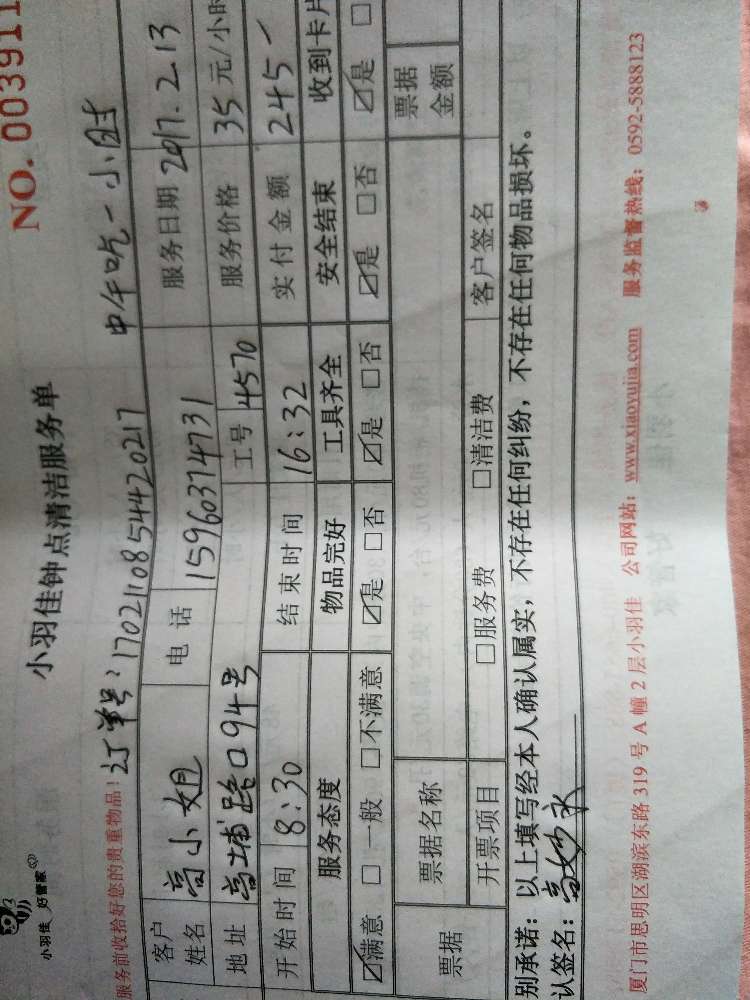 小羽佳 好管家
小羽佳钟点清洁服务单
NO. 003911
服务前收拾好您的贵重物品! 订单号:170211085442 0217 中午吃一小时
客户姓名 高小姐 电话 15960314731 服务日期 2017.2.13
地址 高埔路口94号 工号 4570 服务价格 35元/小时
开始时间 8:30 结束时间 16:32 实付金额 245-
服务态度 物品完好 工具齐全 安全结束 收到卡片
☑满意 □一般 □不满意 ☑是 □否 ☑是 □否 ☑是 □否 ☑是 □
票据 票据名称 票据金额
开票项目 □服务费 □清洁费 客户签名
别承诺:以上填写经本人确认属实,不存在任何纠纷,不存在任何物品损坏。
认签名:
厦门市思明区湖滨东路 319 号 A 幢 2 层小羽佳 公司网站:www.xiaoyujia.com 服务监督热线:0592-5888123